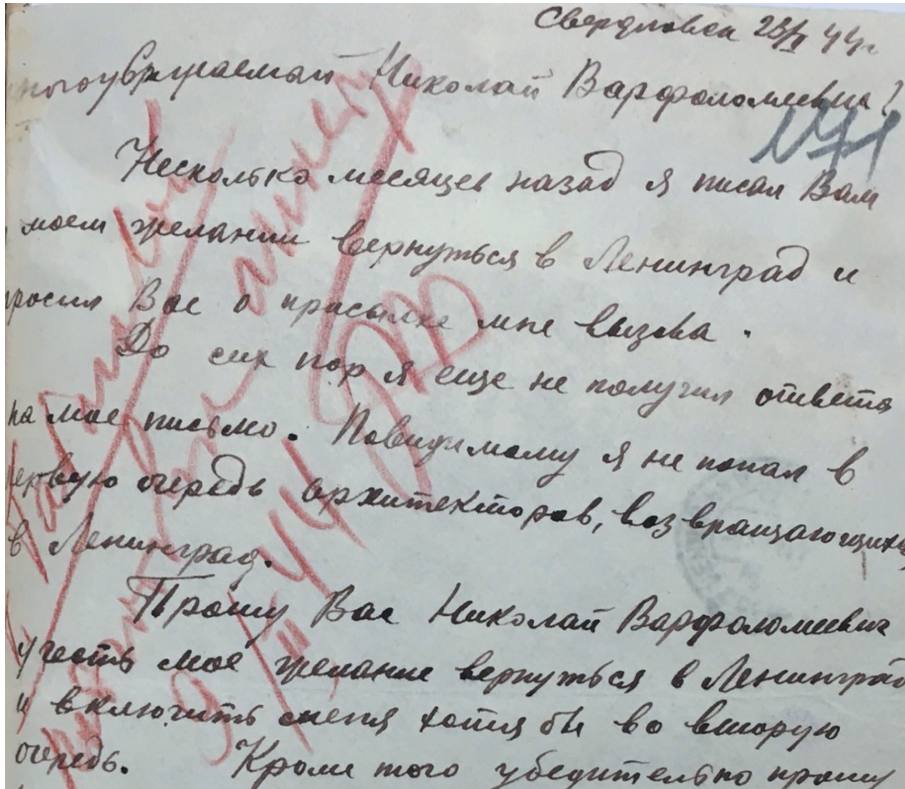 Свердловск 23/I 44 г.
многоуважаемый Николай Варфоломеевич!
Несколько месяцев назад я писал Вам
моем желании вернуться в Ленинград и
просил Вас о присылке мне вызова.
До сих пор я еще не получил ответа
на мое письмо. Повидимому я не попал в
первую очередь архитекторов, возвращающихся
в Ленинград.
Прошу Вас Николай Варфоломеевич
учесть мое желание вернуться в Ленинград
и включить меня хотя бы во вторую
очередь. Кроме того убедительно прошу